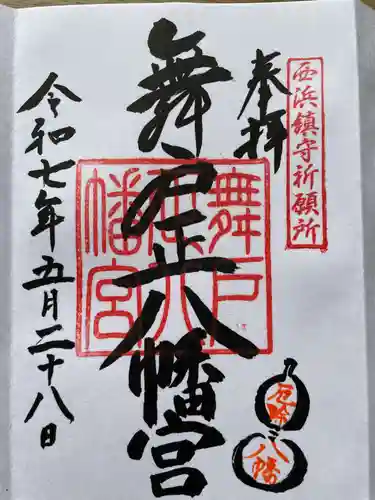 西浜鎮守祈願所
奉拝
舞戸正八幡宮
舞戸
正八
幡宮
厄除
八幡
令和七年五月二十八日